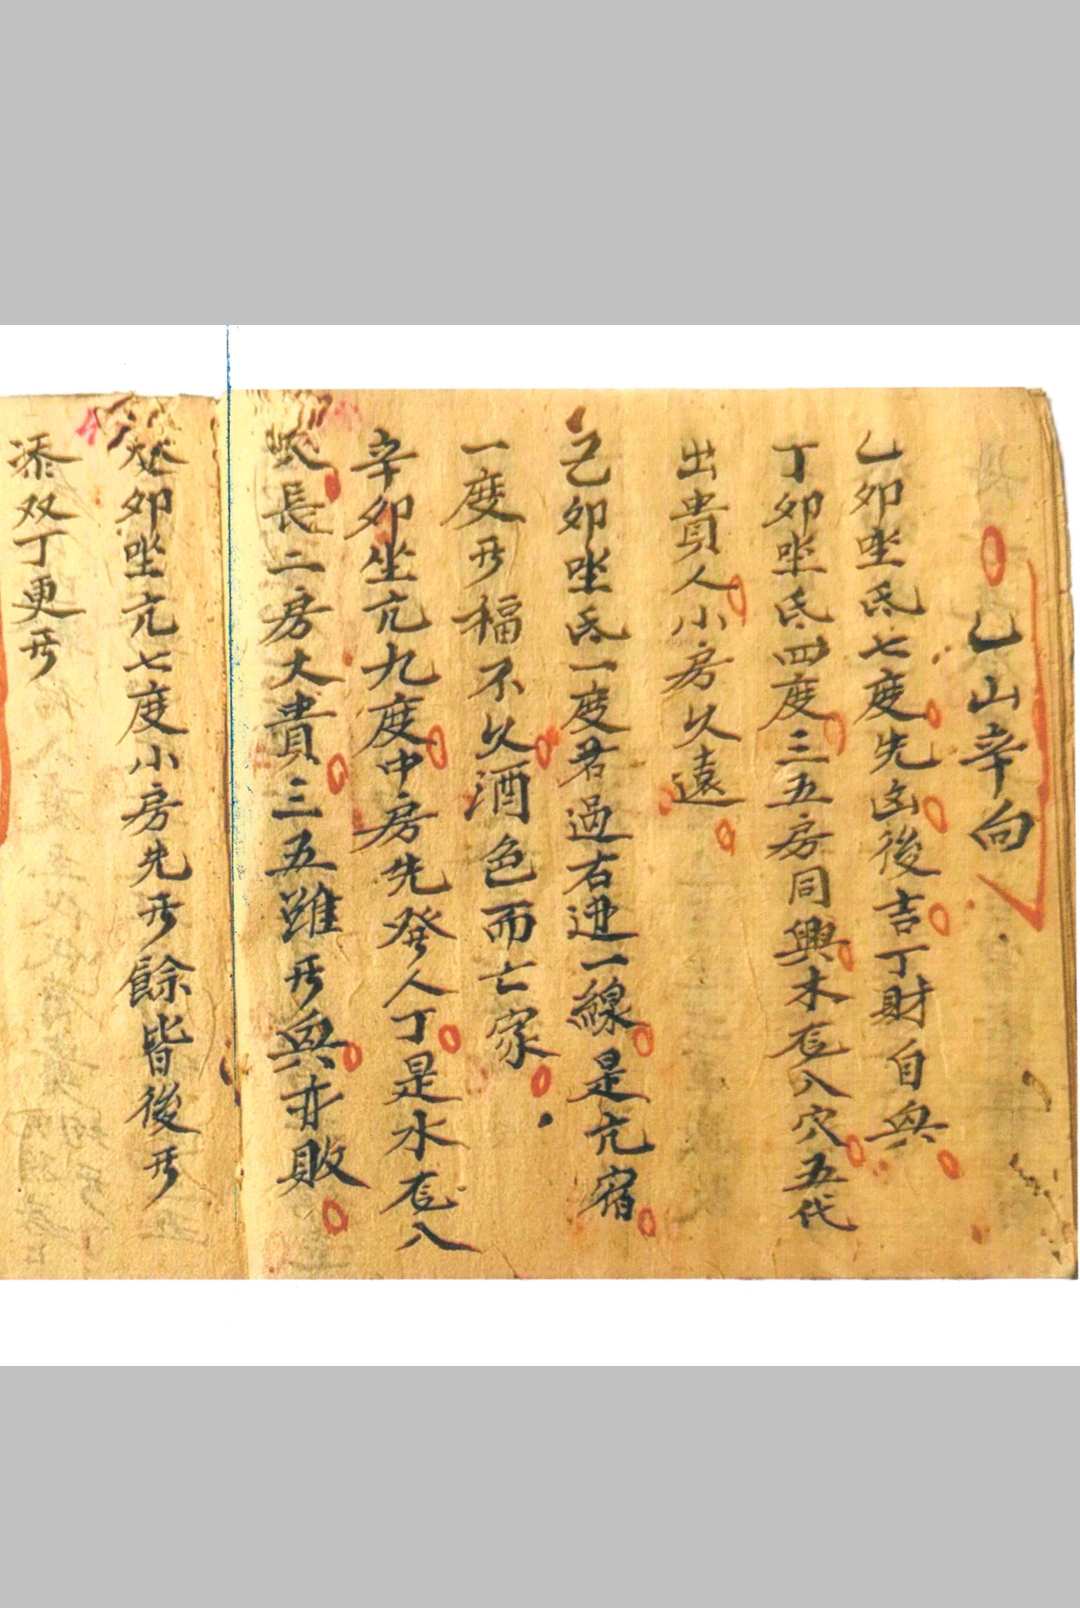 乙山辛向
乙卯坐氐七度先凶後吉丁財自興
丁卯坐氐四度三五房同興木在入穴五代
出貴人小房久遠
己卯坐氐一度君過右边一線是亢宿
一度天福不久酒色而亡家
辛卯坐亢九度中房先發人丁是水在入
长二房大貴三五雖興亦敗
癸卯坐亢七度小房先餘皆後
添双丁更